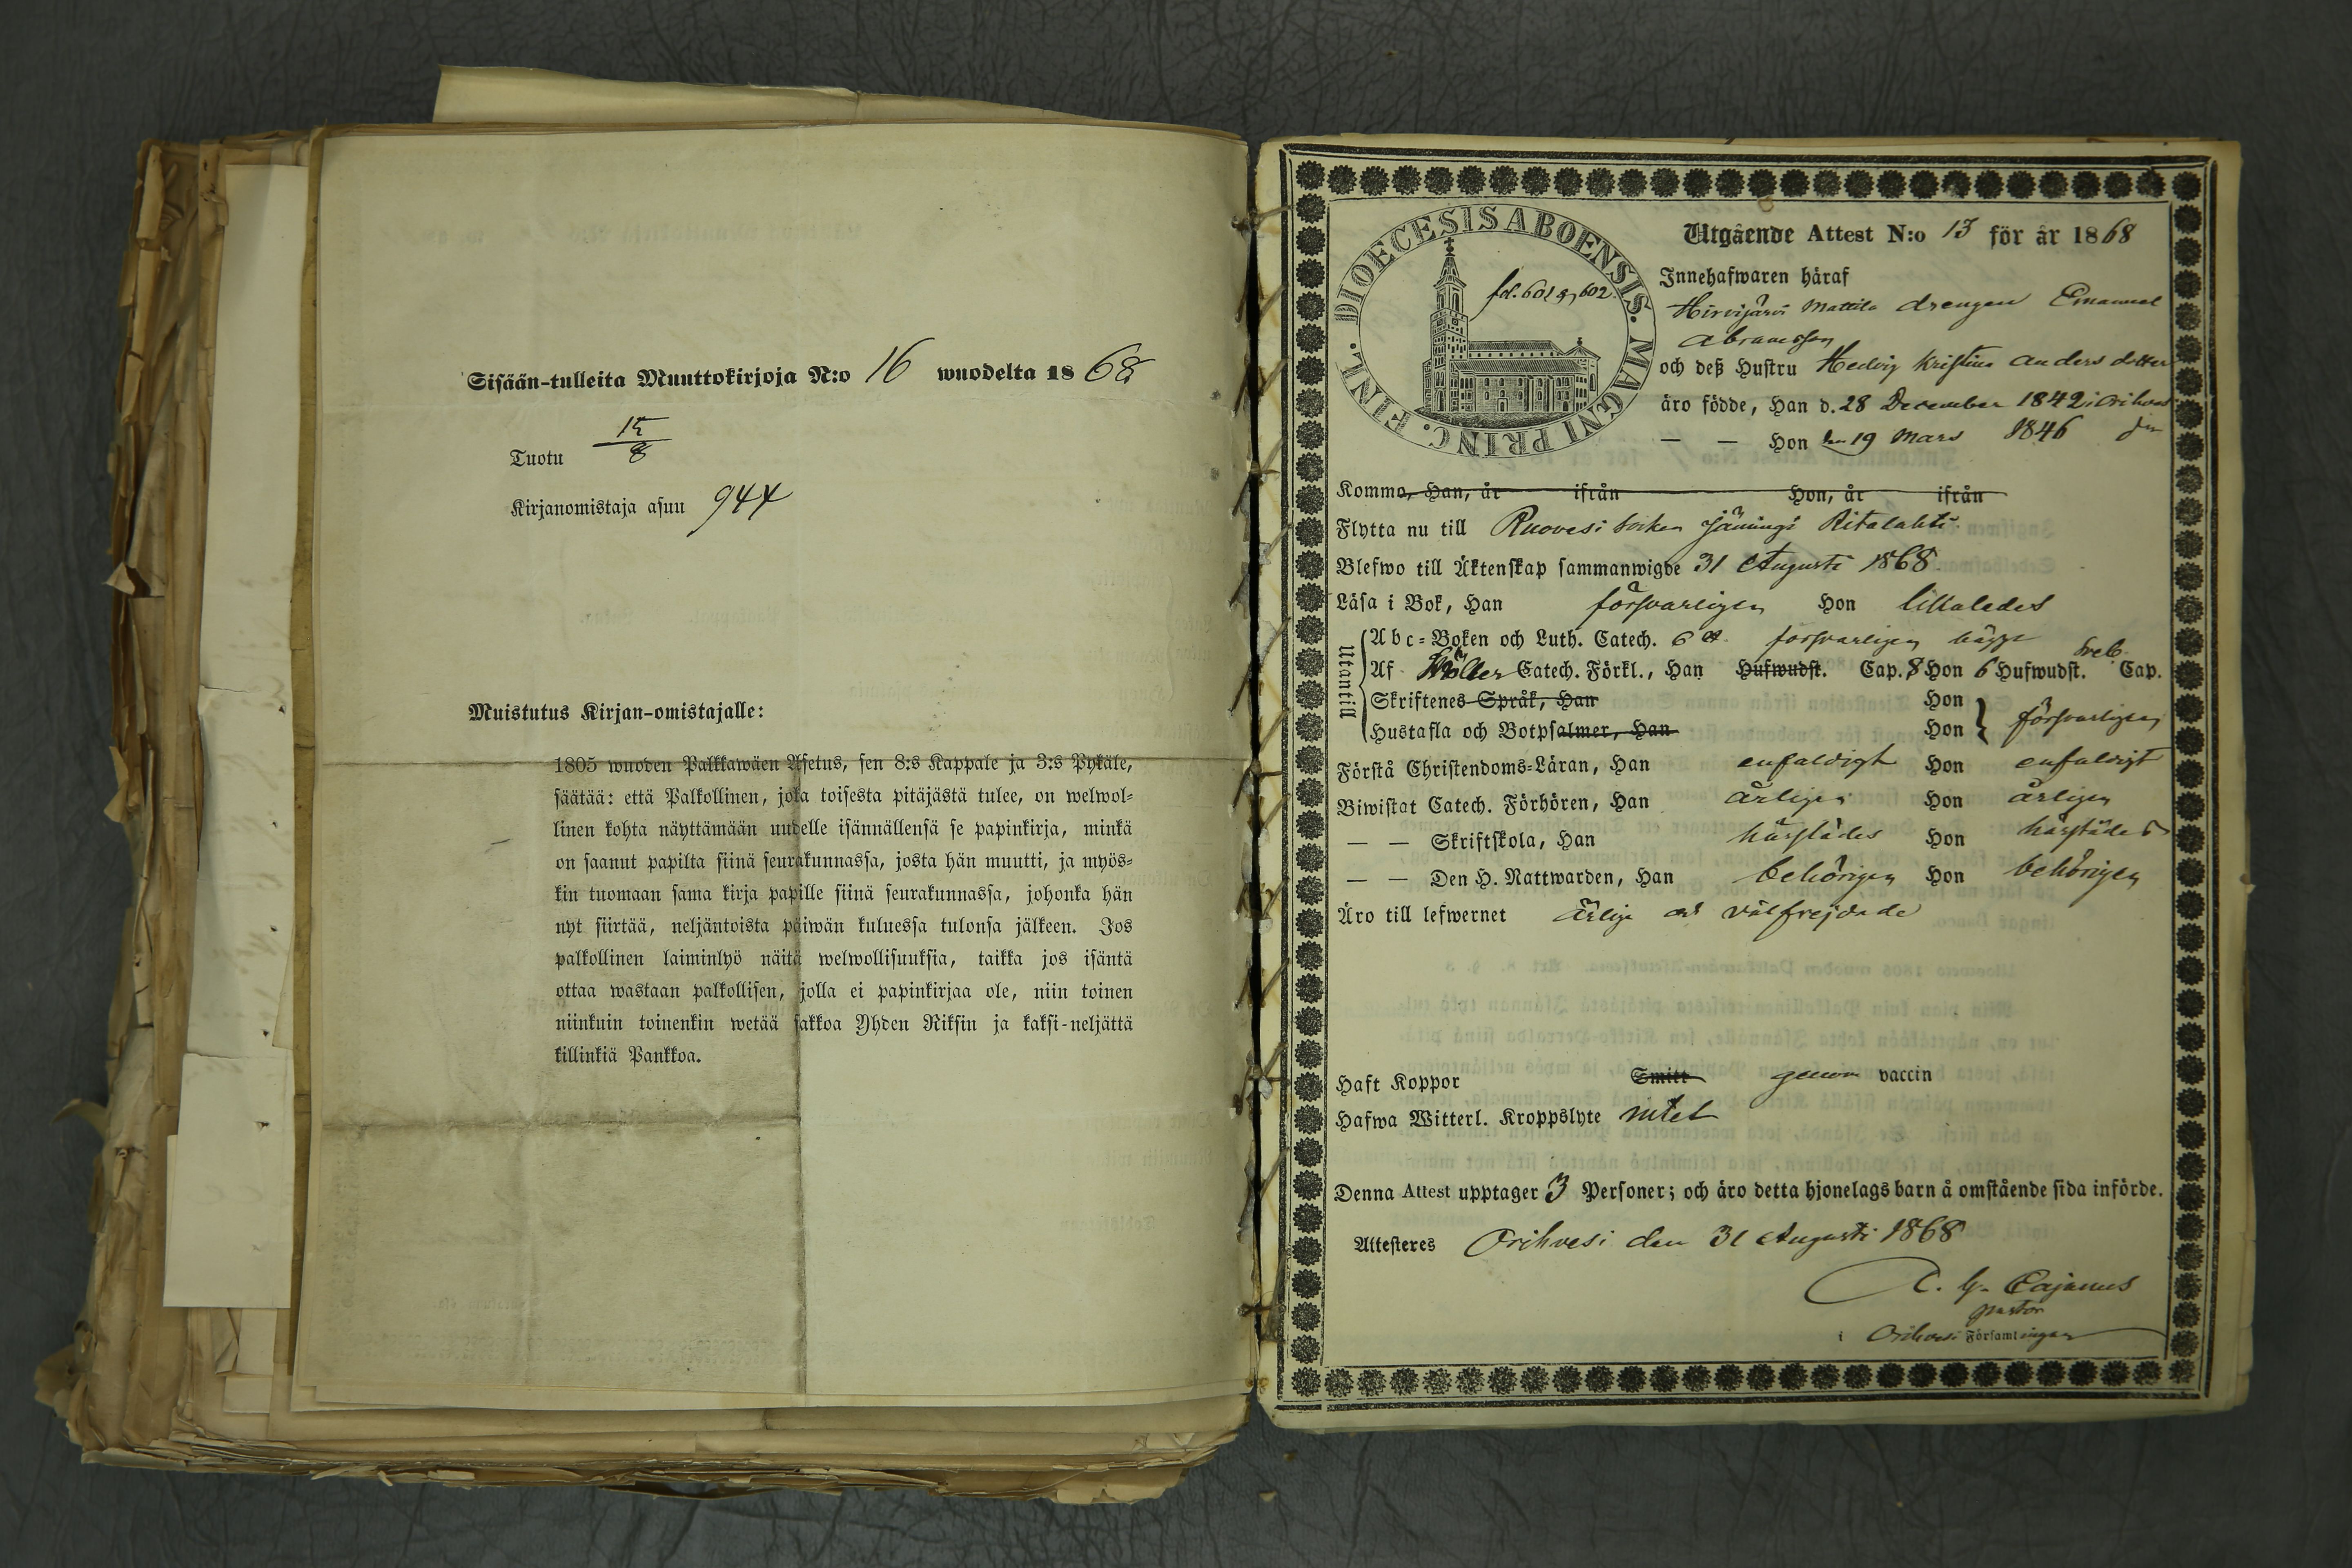 Sisään-tulleita Muuttokirjoja N:o 16 wuodelta 1868
Tuotu 15/8
Kirjanomistaja asuu 944
Muistutus Kirjan-omistajalle:
1805 wuoden Palkkawäen Asetus, sen 8:s Kappale ja 3:s Pykäle,
säätää: että Palkollinen, joka toisesta pitäjästä tulee, on welwol=
linen kohta näyttämään uudelle isännällensä se papinkirja, minkä
on saanut papilta siinä seurakunnassa, josta hän muutti, ja myös=
kin tuomaan sama kirja papille siinä seurakunnassa, johonka hän
nyt siirtää, neljäntoista päiwän kuluessa tulonsa jälkeen. Jos
palkollinen laiminlyö näitä welwollisuuksia, taikka jos isäntä
ottaa wastaan palkollisen, jolla ei papinkirjaa ole, niin toinen
niinkuin toinenkin wetää sakkoa Yhden Riksin ja kaksi-neljättä
killinkiä Pankkoa.
DIOECESIS ABOENSIS. MAGNI PRINC. FINL.
fol. 601 & 602.
Utgående Attest N:o 13 för år 1868
Innehafwaren häraf
Hirvijärvi Mattila drengen Emanuel
Abramsson
och deß Hustru Hedvig Kristina Andersdotter
äro födde, Han d. 28 December 1842 i Orihvesi
— — Hon den 19 Mars 1846
Komma, Han, år ifrån Hon, år ifrån
Flytta nu till Ruovesi socken Jämingi Ritalahti.
Blefwo till Äktenskap sammanwigde 31 Augusti 1868.
Läsa i Bok, Han försvarligen Hon lillaledes
Utantill
Abc=Boken och Luth. Catech. försvarligen bägge
Af Catech. Förkl., Han Hufwudst. Cap. 8 Hon 6 Hufwudst. Cap.
Skriftenes Språk, Han Hon
Hustafla och Botpsalmer, Han Hon försvarligen
Förstå Christendoms=Läran, Han enfaldigt Hon enfaldigt
Biwistat Catech. Förhören, Han årligen Hon årligen
— — Skriftskola, Han härstädes Hon härstädes
— — Den H. Nattwarden, Han behörigen Hon behörigen
Äro till lefwernet ärlige och välfrejdade
Haft Koppor Smitt genom vaccin
Hafwa Witterl. Kroppslyte intet
Denna Attest upptager 3 Personer; och äro detta hjonelags barn å omstående sida införde.
Attesteres Orihvesi den 31 Augusti 1868
Cajanus
pastor
i Orihvesi Församlingar